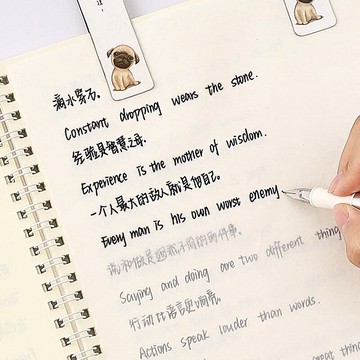 滴水穿石。
Constant dropping wears the stone.
经验是智慧之母。
Experience is the mother of wisdom.
一个人最大的敌人就是他自己。
Every man is his own worst enemy.
说和做是迥然不同的两件事。
Saying and doing are two different thing
行动比语言更响亮。
Actions speak louder than words.
great thing